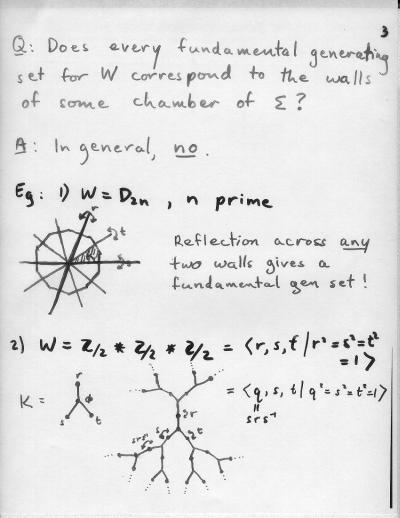 3
Q: Does every fundamental generating
set for W correspond to the walls
of some chamber of Σ?
A: In general, no.
Eg: 1) W = D₂ₙ , n prime
r
t
s
Reflection across any
two walls gives a
fundamental gen set!
2) W = Z/2 * Z/2 * Z/2 = ⟨r, s, t | r² = s² = t²
= 1⟩
= ⟨q, s, t | q² = s² = t² = 1⟩
"
srs⁻¹
K =
r
φ
s t
r
srs⁻¹ s t